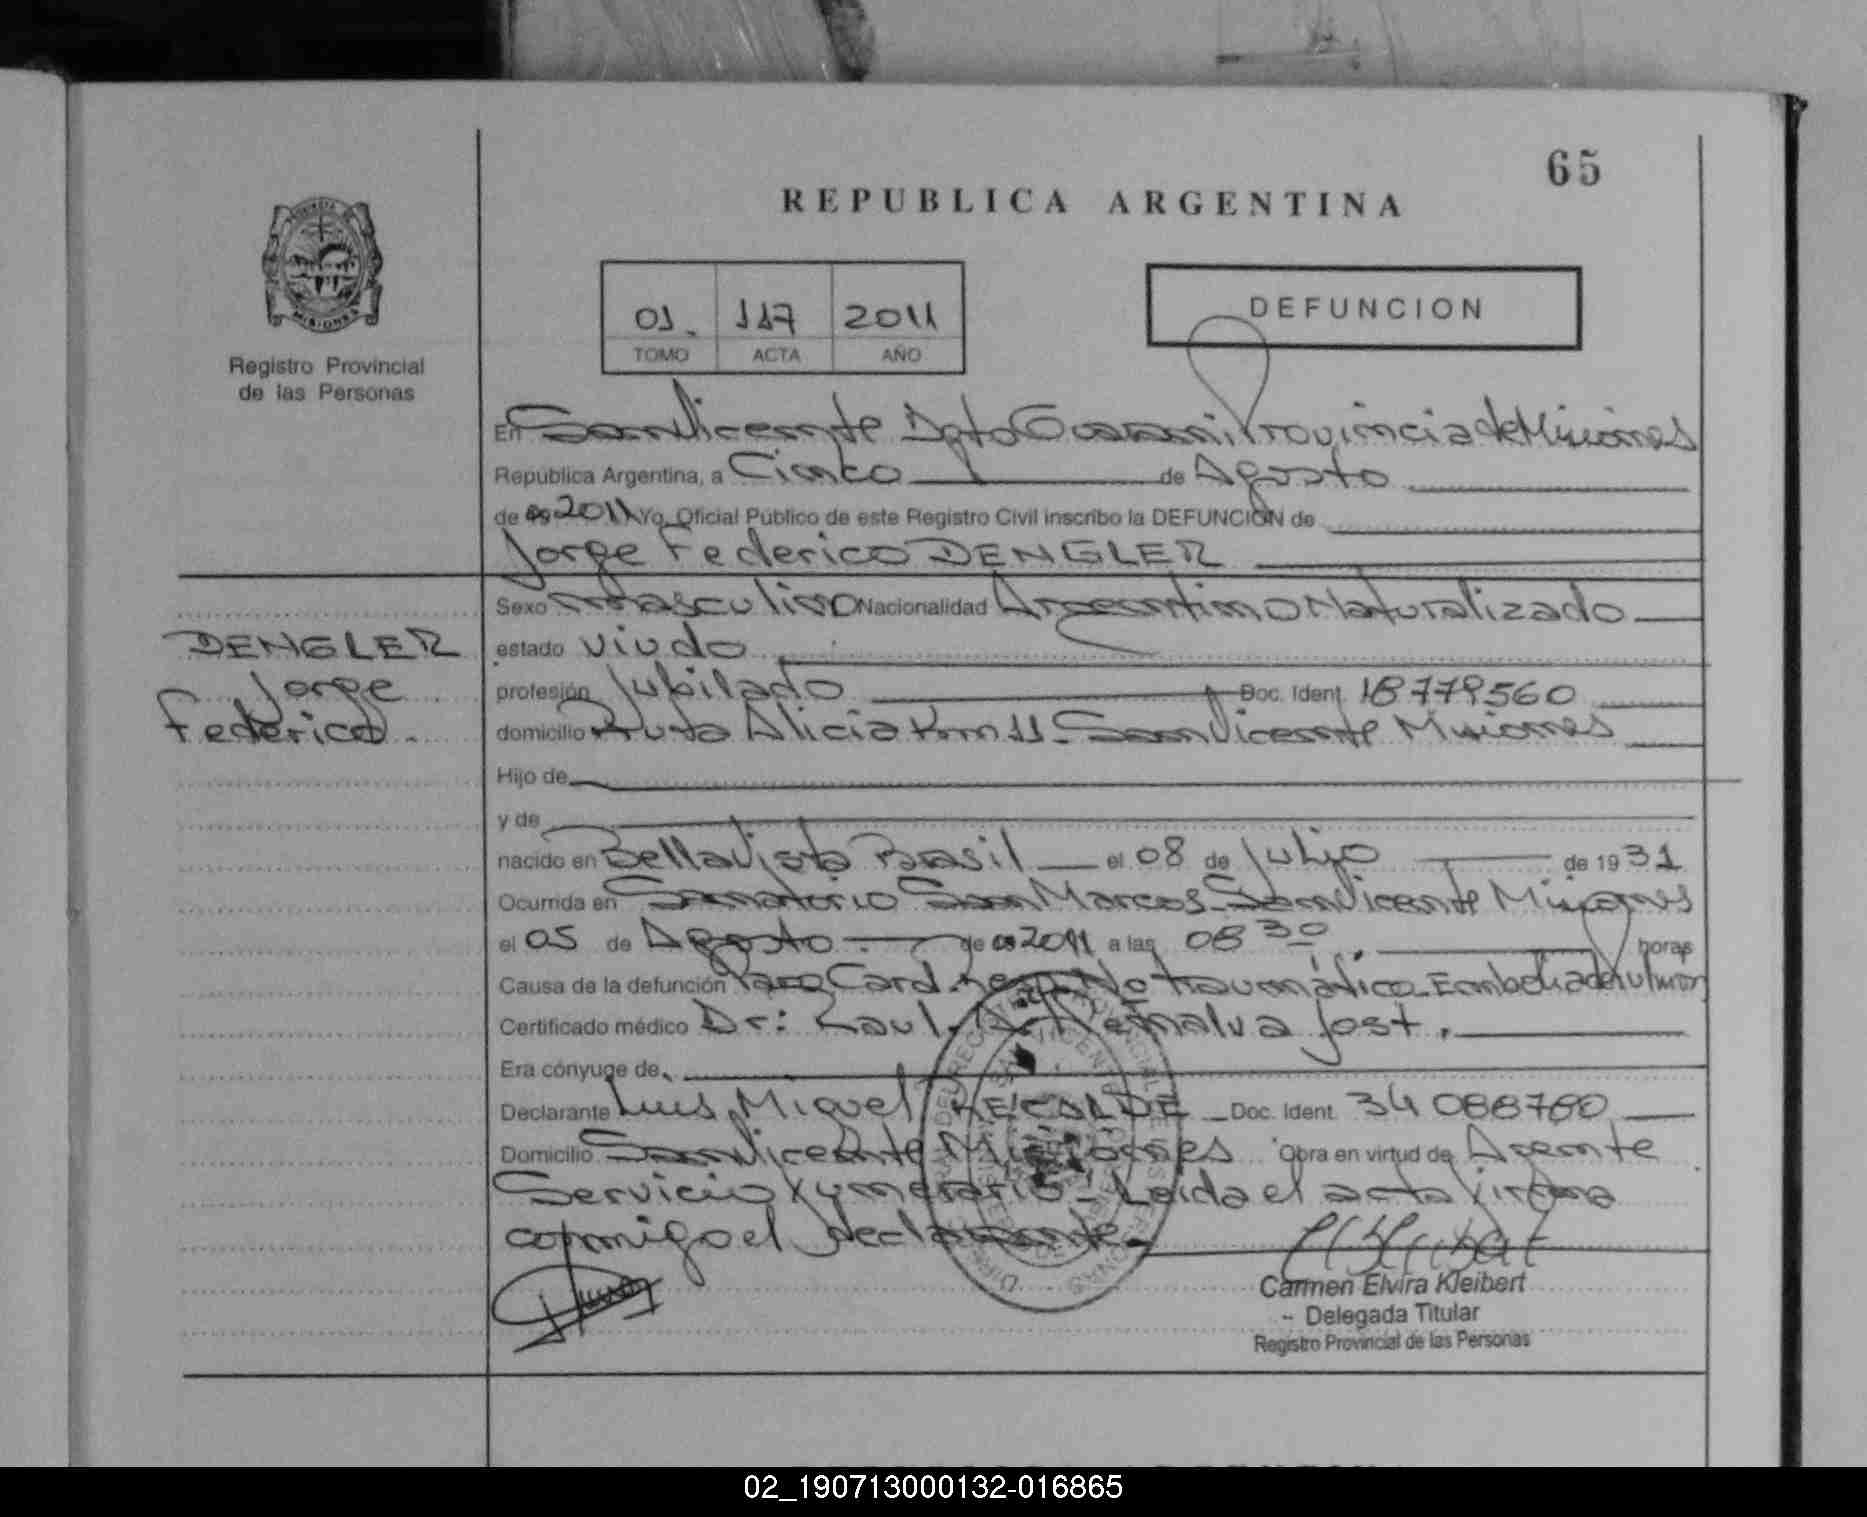 65
REPUBLICA ARGENTINA
MISIONES
Registro Provincial
de las Personas
01. 117 2011
TOMO ACTA AÑO
DEFUNCION
En San Vicente Dpto Guarani Provincia de Misiones
República Argentina, a Cinco de Agosto
de 19 2011 Yo, Oficial Público de este Registro Civil inscribo la DEFUNCION de
Jorge Federico DENGLER
DENGLER
Jorge
Federico.
Sexo masculino Nacionalidad Argentino Naturalizado
estado viudo
profesión Jubilado Doc. Ident. 18779560
domicilio Ruta Alicia Km 11 - San Vicente Misiones
Hijo de
y de
nacido en Bella Vista Brasil el 08 de Julio de 1931
Ocurrida en Sanatorio San Marcos San Vicente Misiones
el 05 de Agosto de 2011 a las 08 30 horas
Causa de la defunción Paro Card. Resp. No traumático Embolia de Pulmon
Certificado médico Dr: Raul Jost.
Era cónyuge de
Declarante Luis Miguel RECALDE Doc. Ident. 34 088780
Domicilio San Vicente Misiones Obra en virtud de Agente
Servicio Leida el acta Firma
conmigo el declarante
Carmen Elvira Kleibert
- Delegada Titular
Registro Provincial de las Personas
02_190713000132-016865